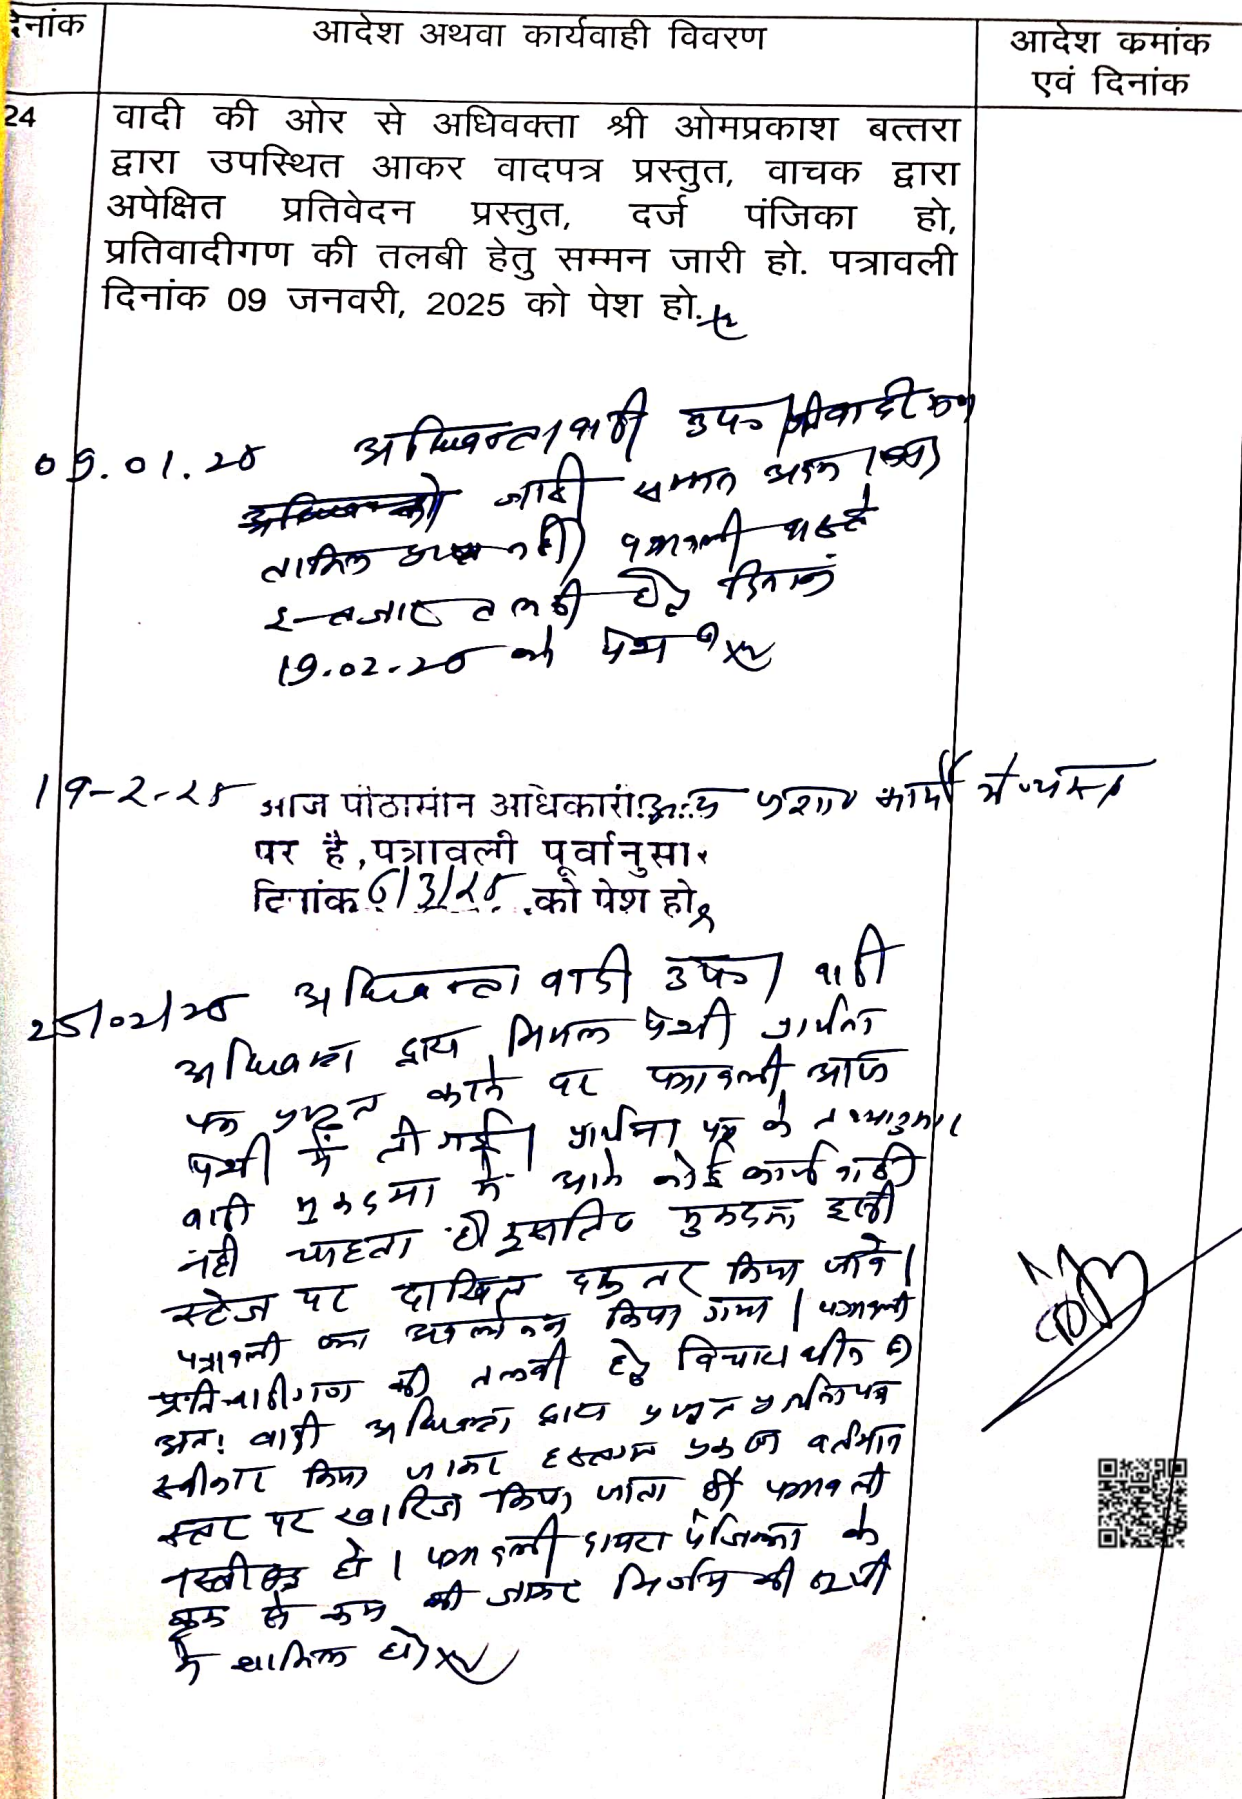 दिनांक
आदेश अथवा कार्यवाही विवरण
आदेश कमांक
एवं दिनांक
24
वादी की ओर से अधिवक्ता श्री ओमप्रकाश बत्तरा
द्वारा उपस्थित आकर वादपत्र प्रस्तुत, वाचक द्वारा
अपेक्षित प्रतिवेदन प्रस्तुत, दर्ज पंजिका हो,
प्रतिवादीगण की तलबी हेतु सम्मन जारी हो. पत्रावली
दिनांक 09 जनवरी, 2025 को पेश हो.
09.01.25 अधिवक्ता वादी उप०
जारी सम्मन
तामिल नहीं पत्रावली वास्ते
इन्तजार तलबी हेतु दिनांक
19.02.25 को पेश हो
19-2-25 आज पीठासीन अधिकारी अन्य कार्य में व्यस्त
पर है, पत्रावली पूर्वानुसार
दिनांक 6/3/25 को पेश हो
25/02/25 अधिवक्ता वादी उप० वादी
अधिवक्ता द्वारा पेशी प्रार्थना
पत्र प्रस्तुत करने पर पत्रावली आज
पेशी में ली गई। प्रार्थना पत्र के तथ्यानुसार
वादी मुकदमा में आगे कोई कार्यवाही
नहीं चाहता है इसलिए मुकदमा इसी
स्टेज पर दाखिल दफ्तर किया जावे।
पत्रावली का अवलोकन किया गया। पत्रावली
प्रतिवादीगण की तलबी हेतु विचाराधीन है
अतः वादी अधिवक्ता द्वारा प्रस्तुत प्रार्थना पत्र
स्वीकार किया जाकर हस्तगत प्रकरण वर्तमान
स्तर पर खारिज किया जाता है। पत्रावली
हो। पत्रावली दायरा पंजिका के
से कम की जाकर निर्णय की
में शामिल हो